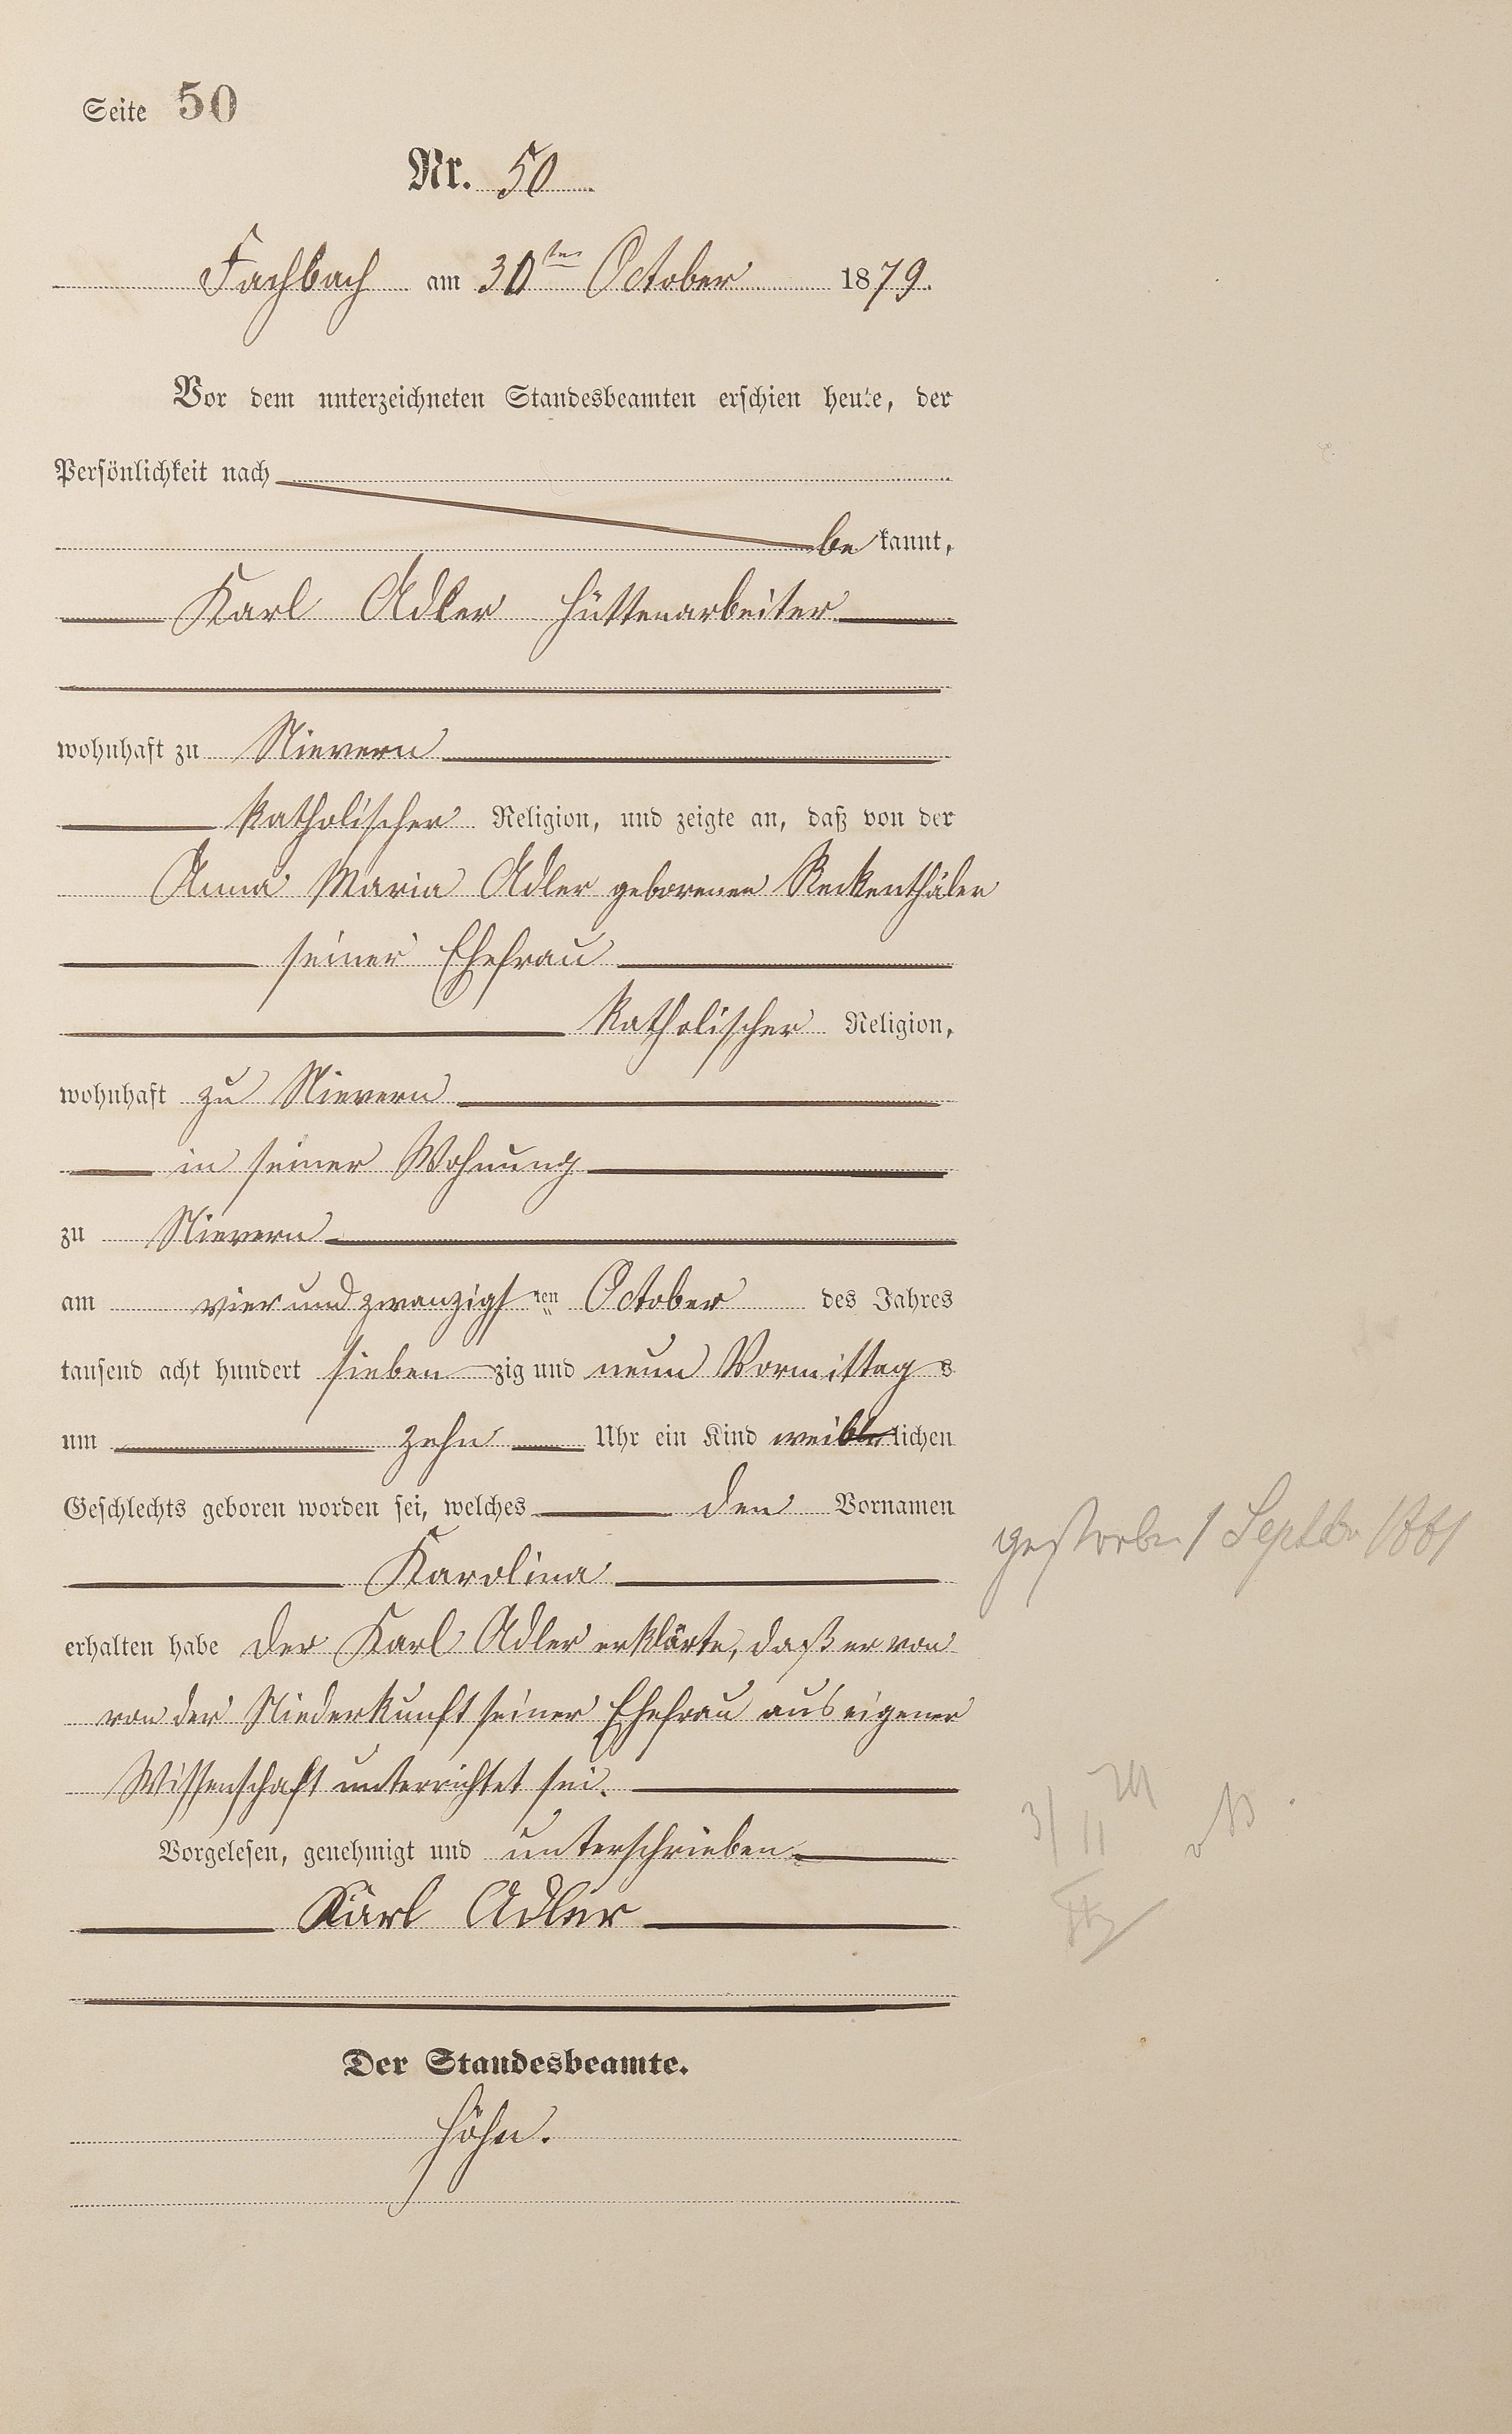 Seite 50
Nr. 50
Fachbach am 30ten October 1879.
Vor dem unterzeichneten Standesbeamten erschien heute, der
Persönlichkeit nach
be kannt,
Karl Adler Hüttenarbeiter
wohnhaft zu Nievern
katholischer Religion, und zeigte an, daß von der
Anna Maria Adler geborenen Reckenthäler
seiner Ehefrau
katholischer Religion,
wohnhaft zu Nievern
in seiner Wohnung
zu Nievern
am vier und zwanzigsten October des Jahres
tausend acht hundert sieben zig und neun Vormittag s
um zehn Uhr ein Kind weiblichen
Geschlechts geboren worden sei, welches den Vornamen
gestorben 1 Septbr 1881
Karolina
erhalten habe der Karl Adler erklärte, daß er von
von der Niederkunft seiner Ehefrau aus eigener
Wissenschaft unterrichtet sei.
Vorgelesen, genehmigt und unterschrieben
Karl Adler
Der Standesbeamte.
Höhn.